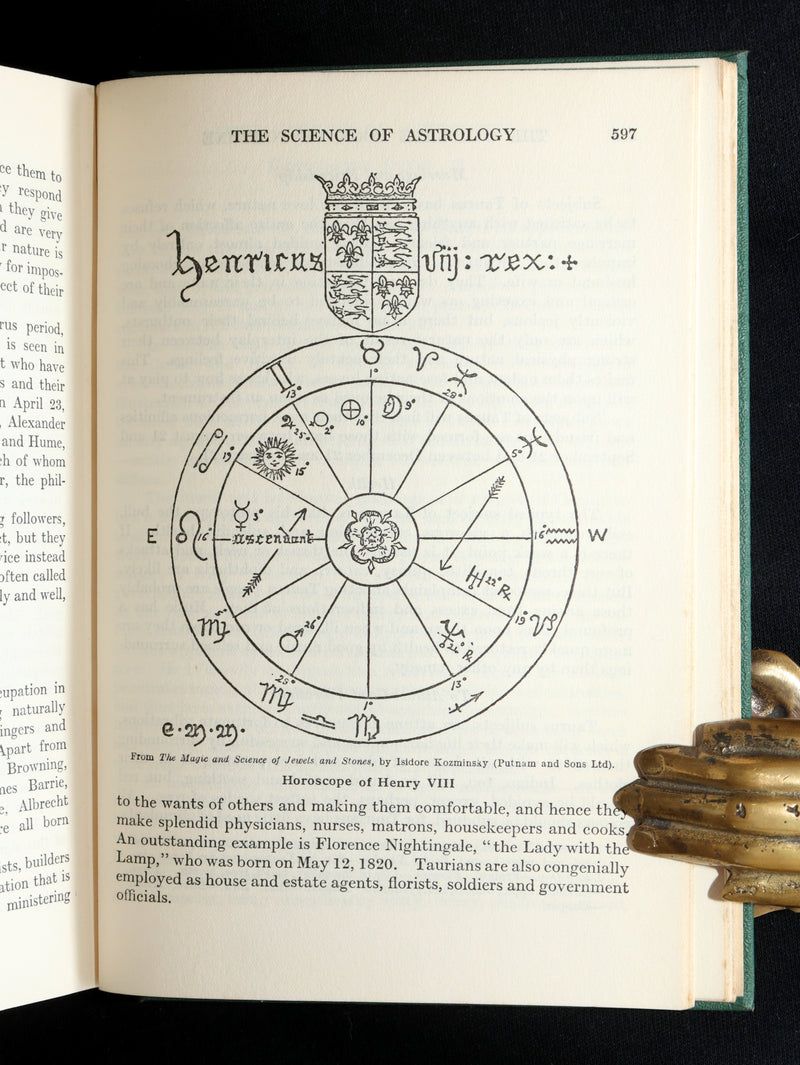 ce them to
y respond
they give
d are very
r nature is
for impos-
ect of their
rus period,
is seen in
t who have
s and their
n April 23,
Alexander
and Hume,
ch of whom
r, the phil-
g followers,
t, but they
vice instead
often called
ly and well,
cupation in
g naturally
ingers and
Apart from
Browning,
mes Barrie,
e, Albrecht
re all born
ists, builders
ation that is
ministering
THE SCIENCE OF ASTROLOGY 597
henricus viij: rex: +
♊ ♉ ♈ ♓
13° 1° 29°
♃ 25° ♀ 2° ⊕ 10° ☽ 9°
♋ 19° 15° 5° ♓
☿ 3°
E ♌ 16° ascendant 16° ♒ W
♅ 22° ℞
5° 19° ♑
♍ ♂ 26° 24° ℞
25° 1° 13° ♐
♎
From The Magic and Science of Jewels and Stones, by Isidore Kozminsky (Putnam and Sons Ltd).
Horoscope of Henry VIII
to the wants of others and making them comfortable, and hence they
make splendid physicians, nurses, matrons, housekeepers and cooks.
An outstanding example is Florence Nightingale, “the Lady with the
Lamp,” who was born on May 12, 1820. Taurians are also congenially
employed as house and estate agents, florists, soldiers and government
officials.